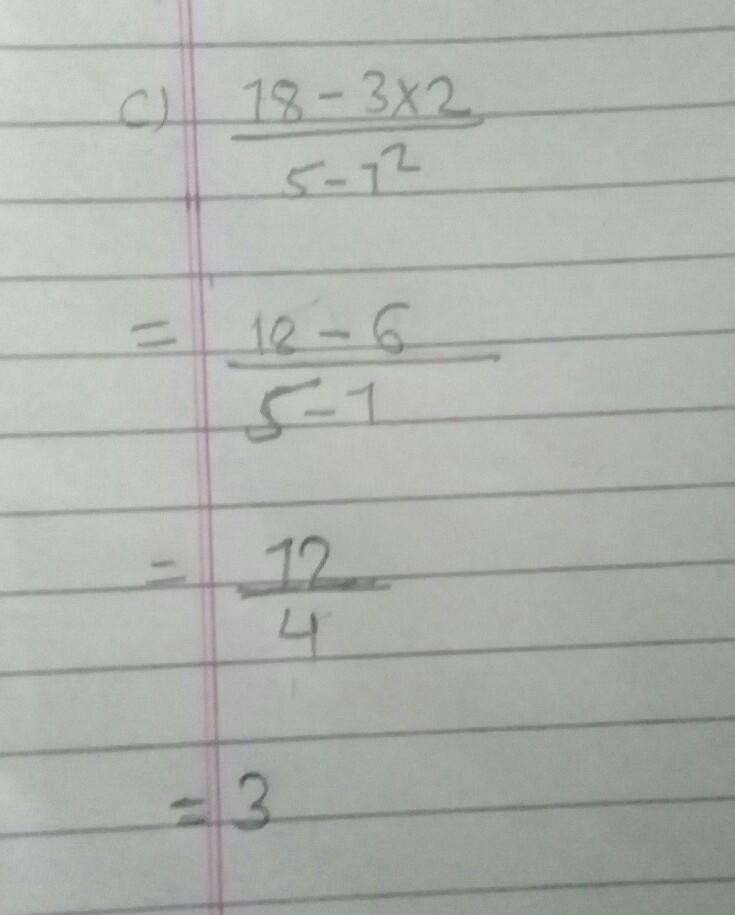 c) 18 - 3×2
5-1²
= 18 - 6
5-1
= 12
4
= 3